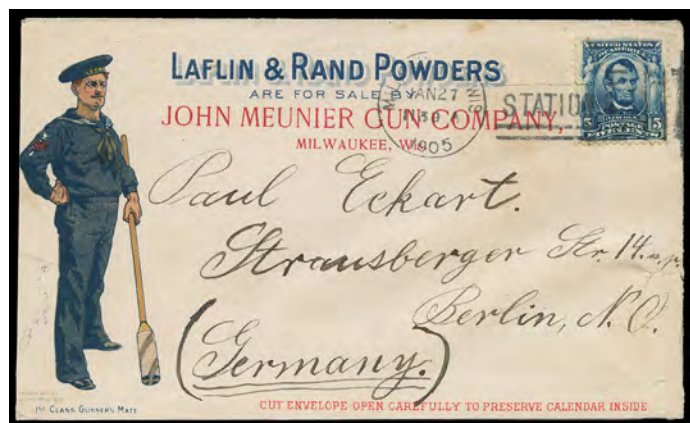 LAFLIN & RAND POWDERS
ARE FOR SALE BY
JOHN MEUNIER GUN COMPANY,
MILWAUKEE, WIS.
JAN 27
1905
STATIO
UNITED STATES
OF AMERICA
5 POSTAGE 5
FIVE CENTS
Paul Eckart.
Strausberger Str. 14.
Berlin, N.O.
(Germany.)
1st CLASS GUNNER'S MATE
CUT ENVELOPE OPEN CAREFULLY TO PRESERVE CALENDAR INSIDE